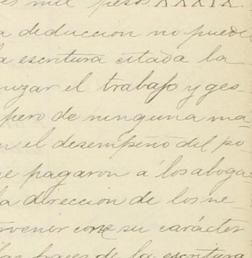 es mil pesos XXXIX.
a deduccion no puede
la escritura citada la
uzar el trabajo y ges
pero de ninguna ma
n el desempeño del po
e pagaron á los aboga
la direccion de los ne
rvenir con su carácter
las bases de la escritura